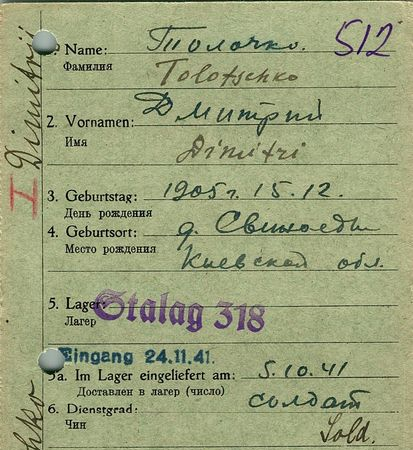 1. Name: Толочко. 512
Фамилия Tolotschko
2. Vornamen: Дмитрий
Имя Dimitri
3. Geburtstag: 1905г. 15.12.
День рождения
4. Geburtsort: д. Свиноеды
Место рождения Киевской обл.
5. Lager: Stalag 318
Лагер
Eingang 24.11.41.
5a. Im Lager eingeliefert am: 5.10.41
Доставлен в лагер (число)
6. Dienstgrad: солдат
Чин Sold.
I Dimitrij
hko